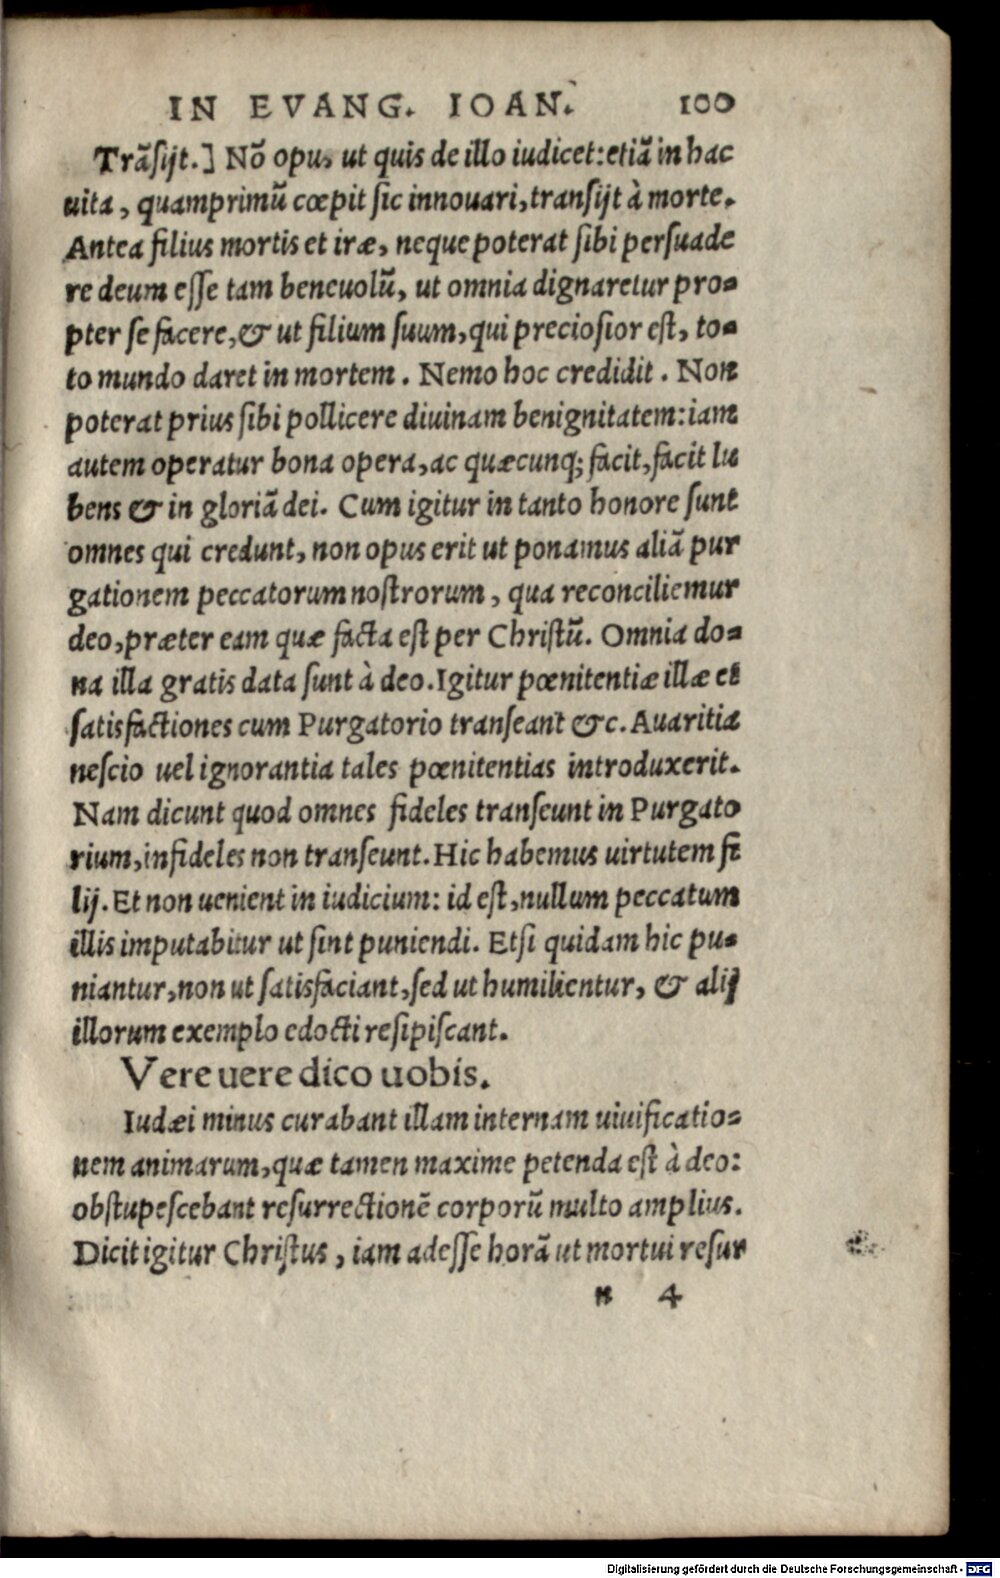 IN EVANG. IOAN. 100
Trãsijt.] Nõ opu, ut quis de illo iudicet: etiã in hac
uita, quamprimũ cœpit sic innouari, transijt à morte.
Antea filius mortis et iræ, neque poterat sibi persuade
re deum esse tam beneuolũ, ut omnia dignaretur pro-
pter se facere, & ut filium suum, qui preciosior est, to-
to mundo daret in mortem. Nemo hoc credidit. Non
poterat prius sibi pollicere diuinam benignitatem: iam
autem operatur bona opera, ac quæcunq; facit, facit lu
bens & in gloriã dei. Cum igitur in tanto honore sunt
omnes qui credunt, non opus erit ut ponamus aliã pur
gationem peccatorum nostrorum, qua reconciliemur
deo, præter eam quæ facta est per Christũ. Omnia do-
na illa gratis data sunt à deo. Igitur pœnitentiæ illæ et
satisfactiones cum Purgatorio transeant &c. Auaritia
nescio uel ignorantia tales pœnitentias introduxerit.
Nam dicunt quod omnes fideles transeunt in Purgato
rium, infideles non transeunt. Hic habemus uirtutem fi
lij. Et non uenient in iudicium: id est, nullum peccatum
illis imputabitur ut sint puniendi. Etsi quidam hic pu-
niantur, non ut satisfaciant, sed ut humilientur, & alij
illorum exemplo edocti resipiscant.
Vere uere dico uobis.
Iudæi minus curabant illam internam uiuificatio-
nem animarum, quæ tamen maxime petenda est à deo:
obstupescebant resurrectionẽ corporũ multo amplius.
Dicit igitur Christus, iam adesse horã ut mortui resur
n 4
Digitalisierung gefördert durch die Deutsche Forschungsgemeinschaft - DFG